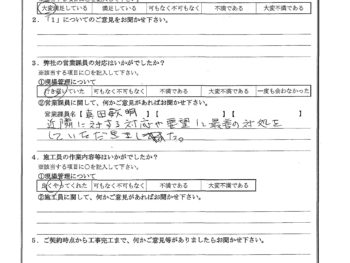 大変満足している 満足している 可もなく不可もなく 不満である 大変不満である
2．「1」についてのご意見をお聞かせ下さい。
3．弊社の営業課員の対応はいかがでしたか？
※該当する項目に○を記入して下さい。
①現場管理について
行き届いていた 可もなく不可もなく 不満である 大変不満である 一度も会わなかった
②営業課員に関して、何かご意見があればお聞かせ下さい。
営業課員名【真田敏明】【 】【 】
近隣に対する対応や要望に最善の対処を
していただきました。
4．施工員の作業内容等はいかがでしたか？
※該当する項目に○を記入して下さい。
①現場管理について
良くやってくれた 可もなく不可もなく 不満である 大変不満である
②施工員に関して、何かご意見があればお聞かせ下さい。
5．ご契約時点から工事完工まで、何かご意見等がありましたらお聞かせ下さい。